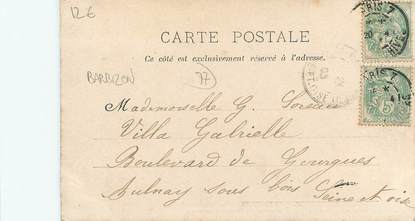 12€
CARTE POSTALE
Ce côté est exclusivement réservé à l'adresse.
BARBIZON
77
Mademoiselle G.
Villa Gabrielle
Boulevard de Gourgues
Aulnay sous bois Seine et oise
PARIS 7
PARIS 7
5